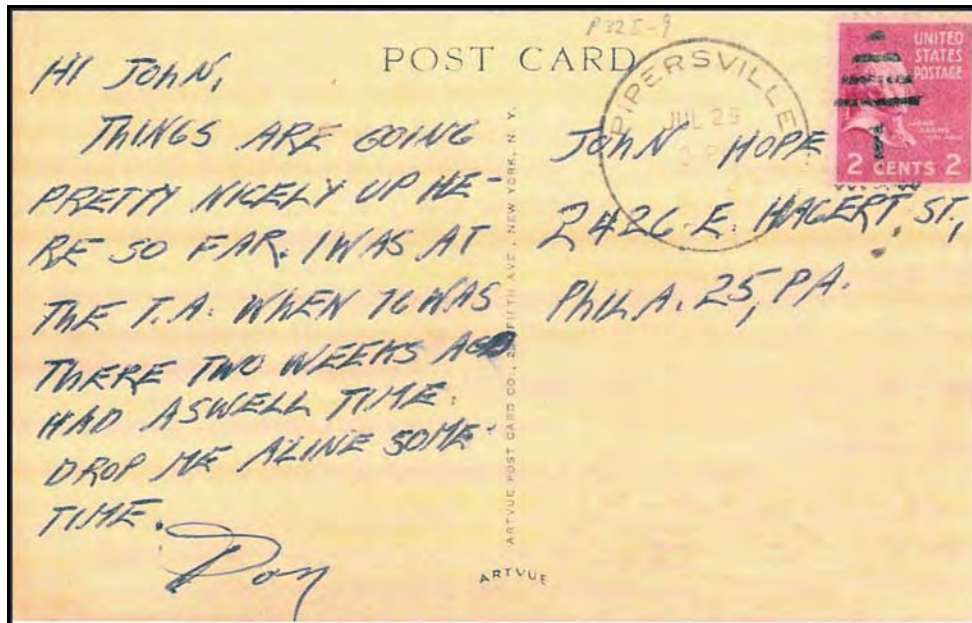 P325-9
POST CARD
HI JOHN,
THINGS ARE GOING
PRETTY NICELY UP HE-
RE SO FAR. I WAS AT
THE T.A. WHEN 76 WAS
THERE TWO WEEKS AGO
HAD A SWELL TIME.
DROP ME A LINE SOME-
TIME.
Don
ARTVUE POST CARD CO., FIFTH AVE., NEW YORK, N. Y.
ARTVUE
PIPERSVILLE
JUL 29
UNITED
STATES
POSTAGE
JOHN
ADAMS
2 CENTS 2
JOHN HOPE
2426 E. HAGERT ST,
PHILA. 25, PA.